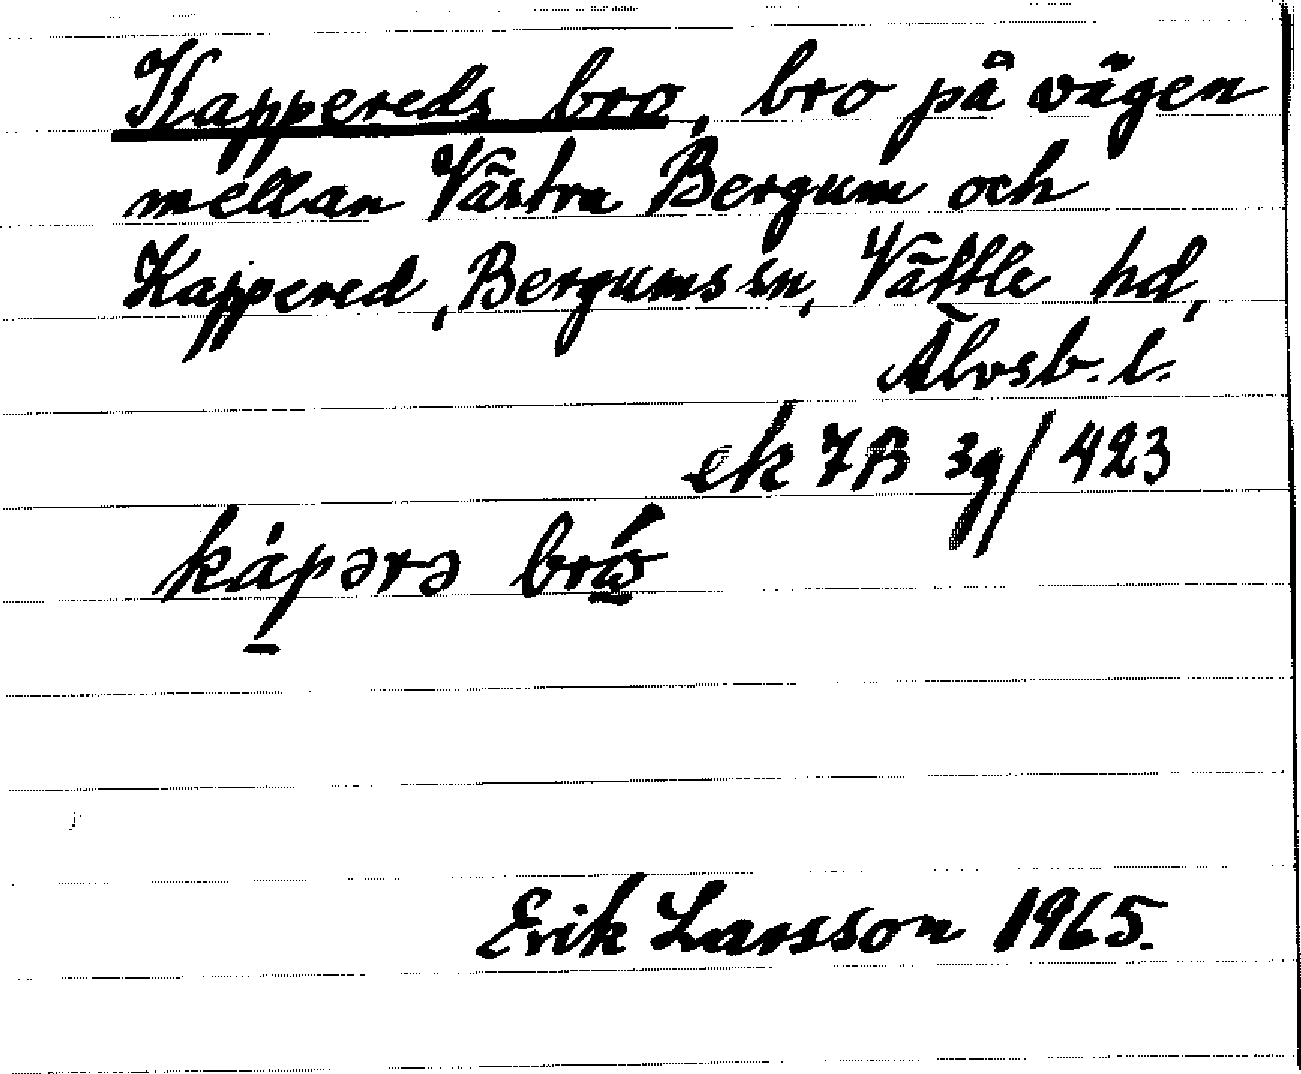 Kappereds bro, bro på vägen
mellan Västra Bergum och
Kappered, Bergums sn, Vättle hd,
Älvsb. l.
ek 7B 3g/423
kápərə bró
Erik Larsson 1965.